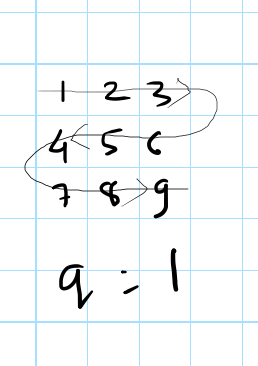 1 2 3
4 5 6
7 8 9
q = 1